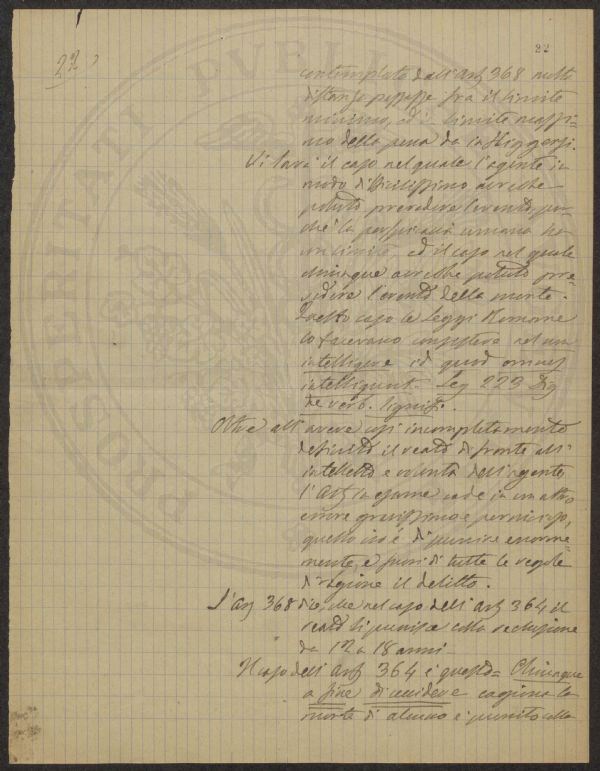 22
22
contemplato dall'art 368 nella
distanza passasse fra il limite
minimo, ed il limite massi-
mo della pena da infliggersi.
Vi sarà il caso nel quale l'agente in
modo difficilissimo avrebbe
potuto prevedere l'evento, per-
chè la perspicacia umana ha
un limite, ed il caso nel quale
chiunque avrebbe potuto pre-
vedere l'evento della morte.
Questo caso le leggi Romane
lo facevano consistere nel non
intelligere id quod omnes
intelligunt. Leg 223 Dig
de verb. signif.
Oltre all'avere così incompletamente
definito il reato di fronte all'
intelletto e volontà dell'agente,
l'Art in esame cade in un altro
errore gravissimo e pernicioso,
quello cioè di punire enorme-
mente, e fuori di tutte le regole
di ragione il delitto.
L'art 368 dice, che nel caso dell'art 364 il
reato si punisce colla reclusione
da 12 a 18 anni-
Il caso dell'Art 364 è questo= Chiunque
a fine di uccidere cagiona la
morte di alcuno è punito colla
PROSPERITATI PUBLI